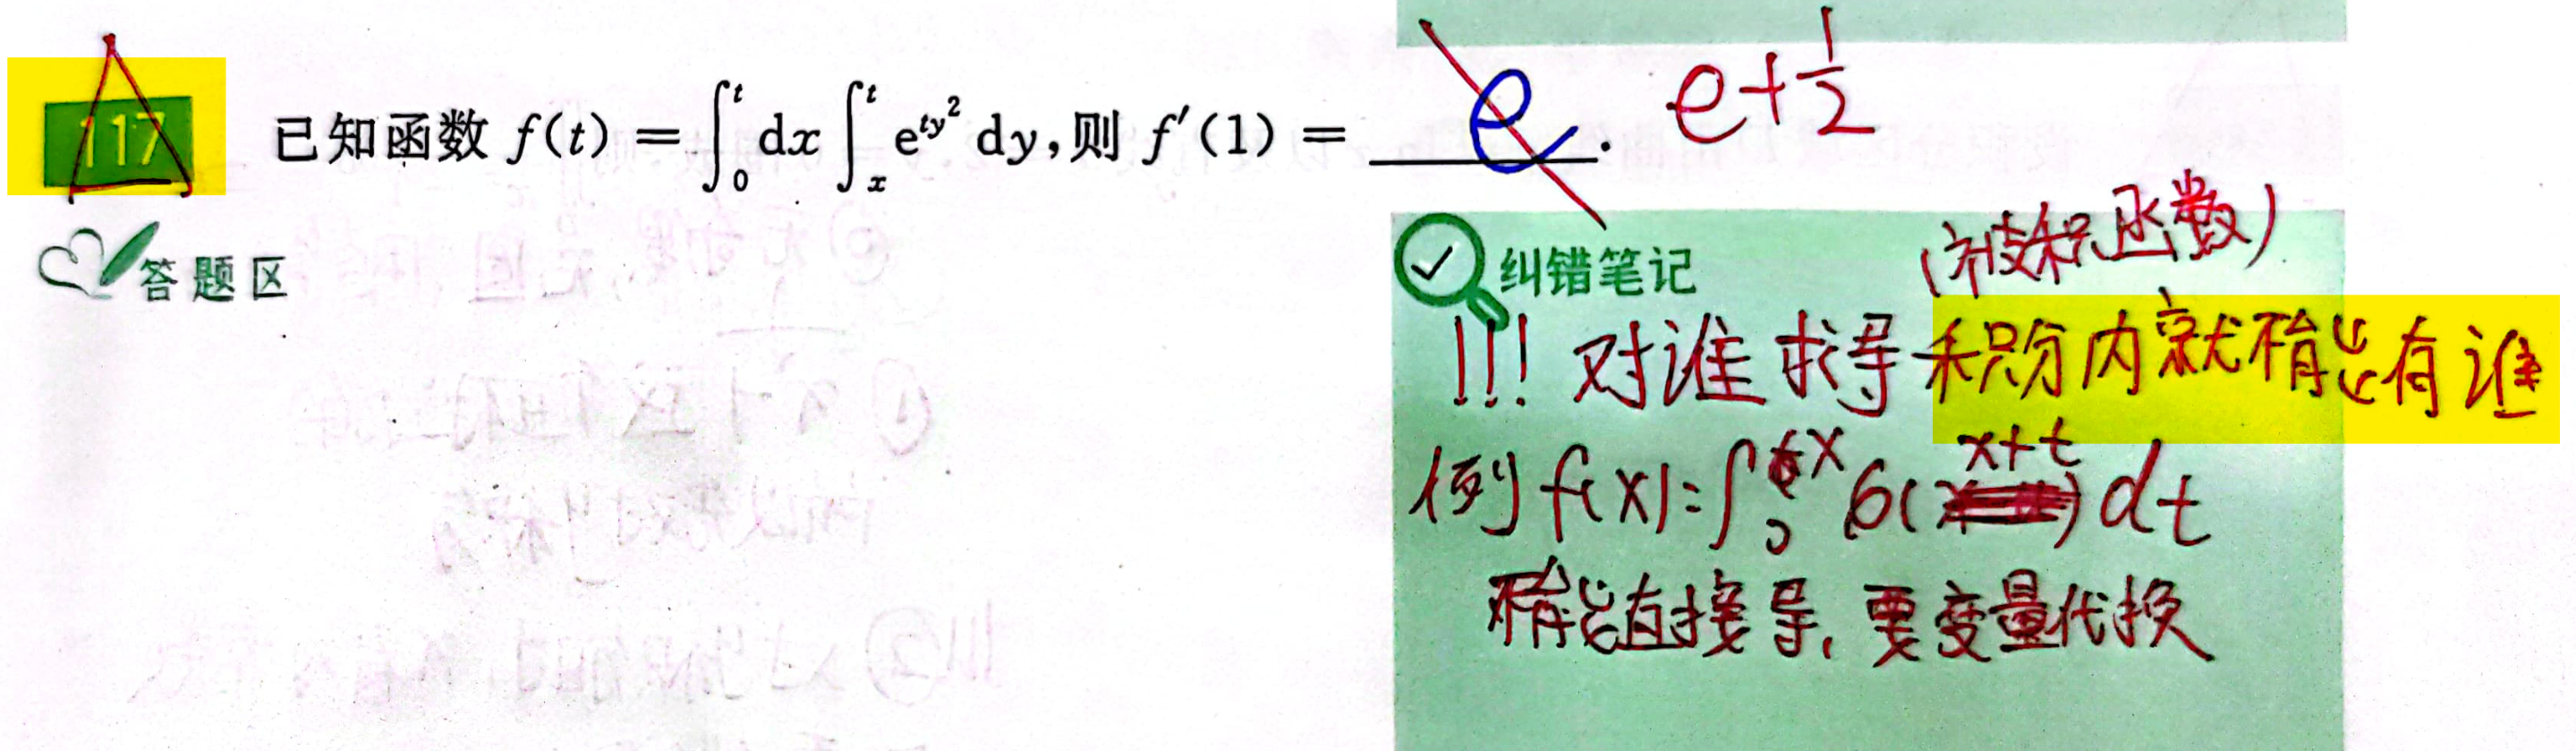 117 已知函数 f(t) = ∫₀ᵗ dx ∫ₓᵗ e^{ty²} dy,则 f′(1) = e. e+1/2
答题区
纠错笔记
(被积函数)
!!! 对谁求导积分内就不能有谁
例 f(x)=∫₀ˣ 6(x+t)dt
不能直接导,要变量代换